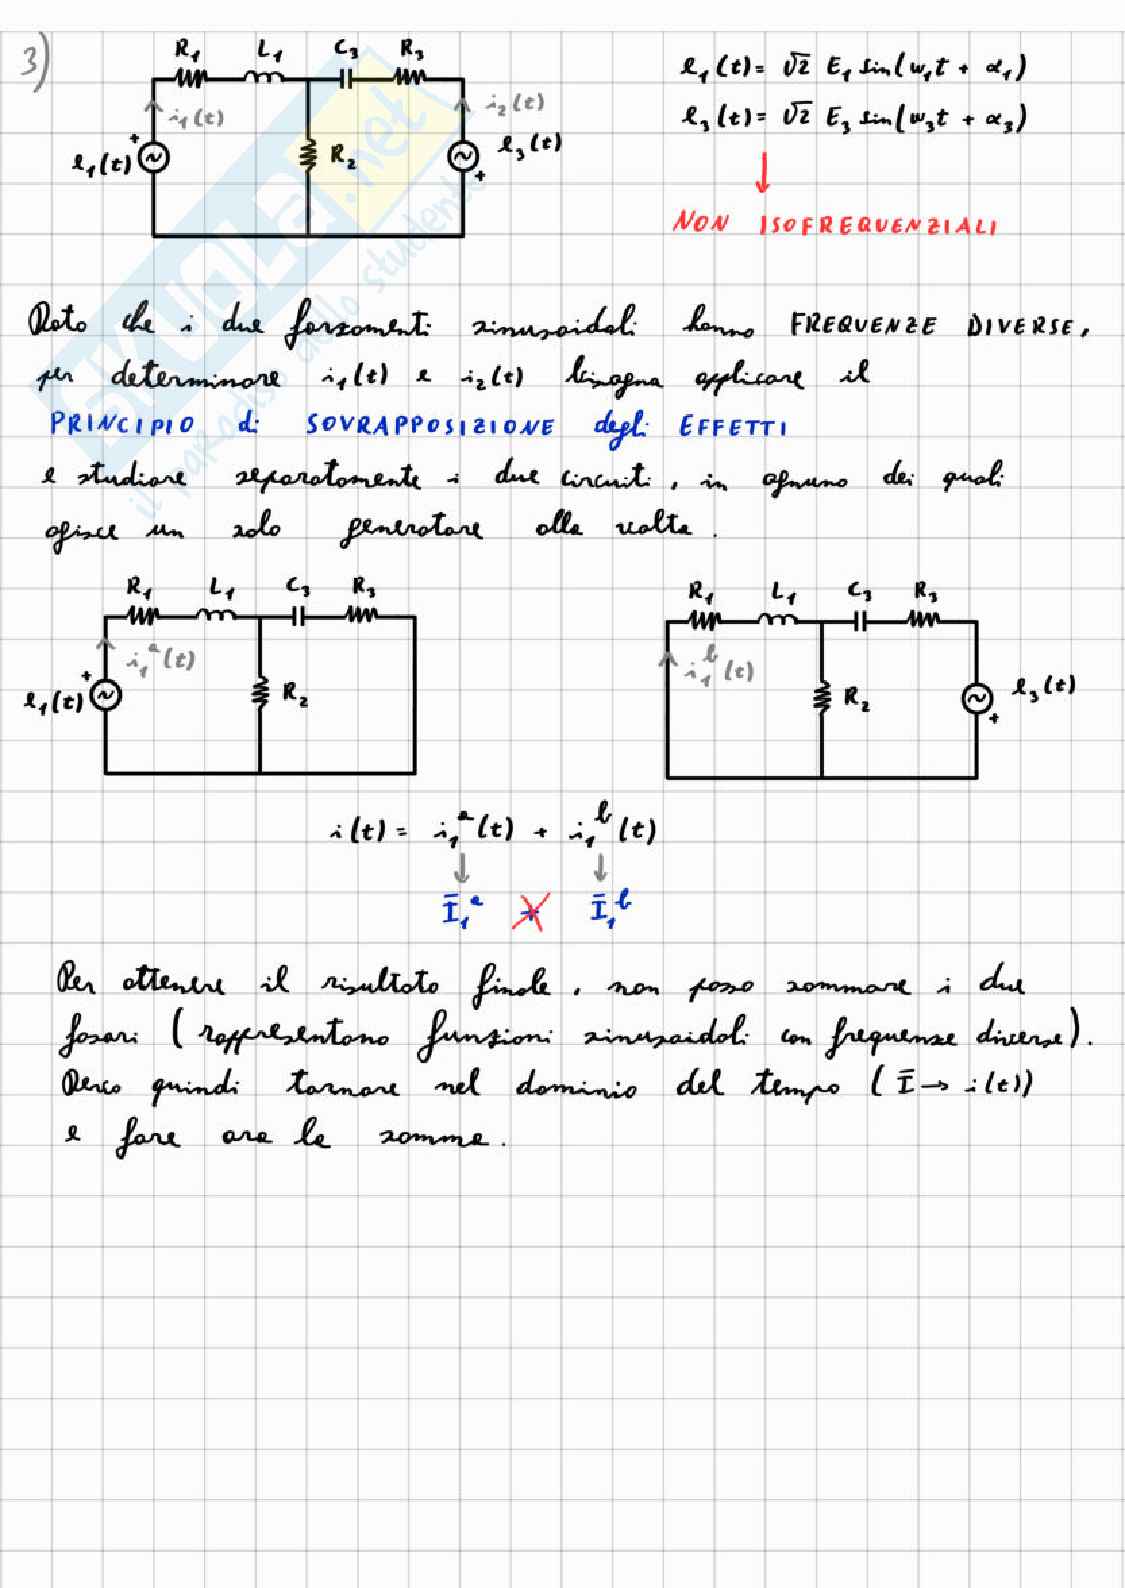 3)
R₁ L₁ C₃ R₃
i₁(t) i₂(t)
+ e₁(t) R₂ e₃(t) +
e₁(t) = √2 E₁ sin(w₁t + α₁)
e₃(t) = √2 E₃ sin(w₃t + α₃)
NON ISOFREQUENZIALI
SKUOLA.net
il paradiso dello studente
Dato che i due forzamenti sinusoidali hanno FREQUENZE DIVERSE,
per determinare i₁(t) e i₂(t) bisogna applicare il
PRINCIPIO di SOVRAPPOSIZIONE degli EFFETTI
e studiare separatamente i due circuiti, in ognuno dei quali
agisce un solo generatore alla volta.
R₁ L₁ C₃ R₃
i₁ᵃ(t)
+ e₁(t) R₂
R₁ L₁ C₃ R₃
i₁ᵇ(t)
R₂ e₃(t) +
i(t) = i₁ᵃ(t) + i₁ᵇ(t)
Ī₁ᵃ + Ī₁ᵇ
Per ottenere il risultato finale, non posso sommare i due
fasori (rappresentano funzioni sinusoidali con frequenze diverse).
Devo quindi tornare nel dominio del tempo (Ī → i(t))
e fare ora la somma.